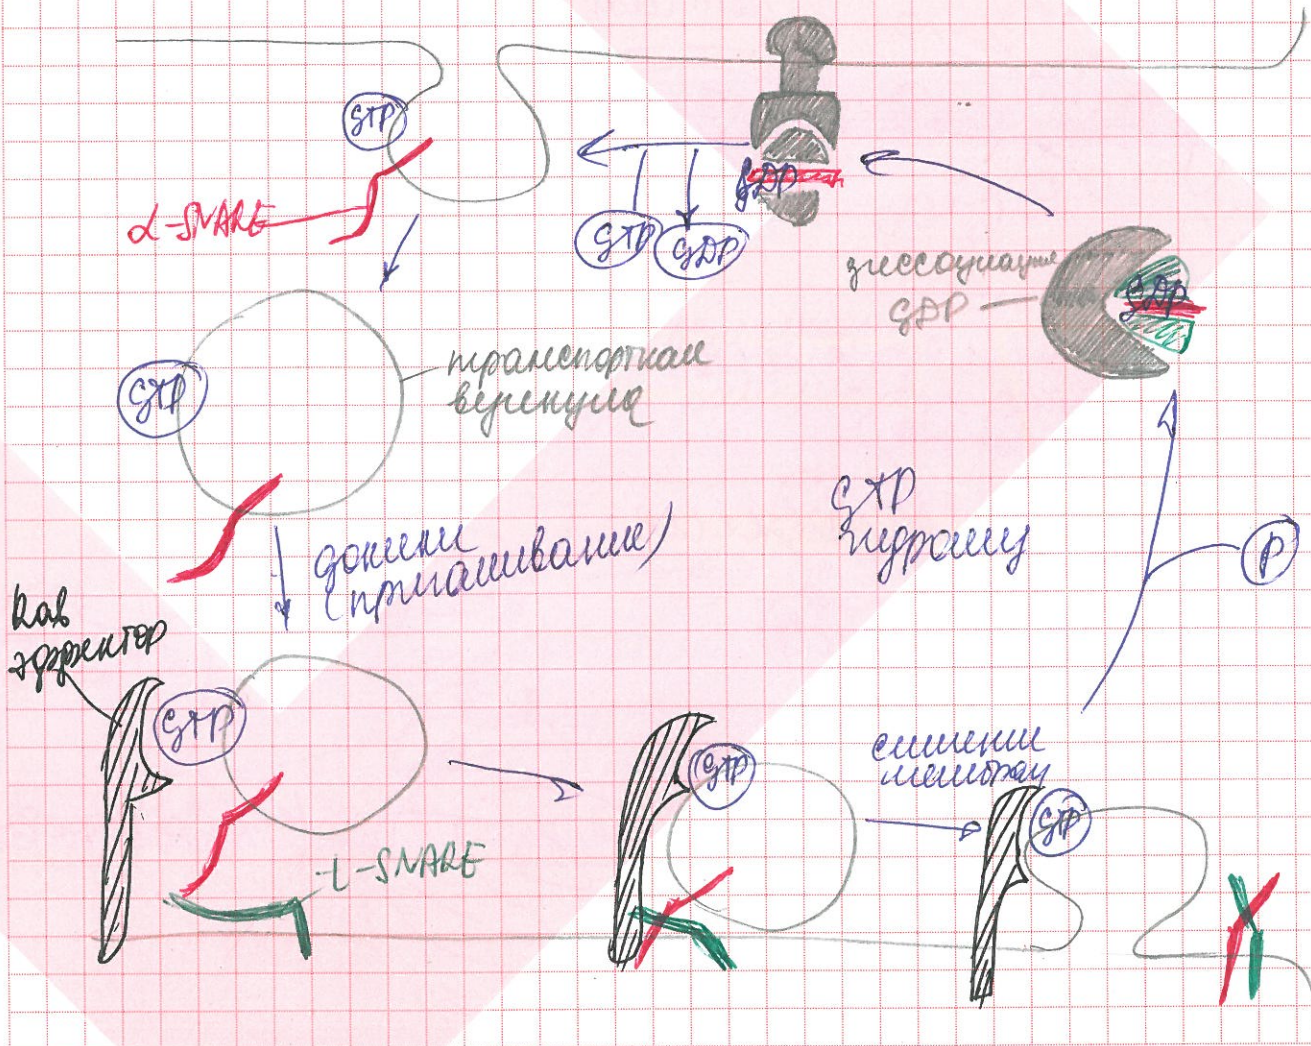 GTP
α-SNARE
GTP
GDP
GDP
диссоциация
GDP
GDP
GTP
транспортная
везикула
докинг
(пришивание)
GTP
гидролиз
P
Rab
эффектор
GTP
t-SNARE
GTP
слияние
мембран
GTP